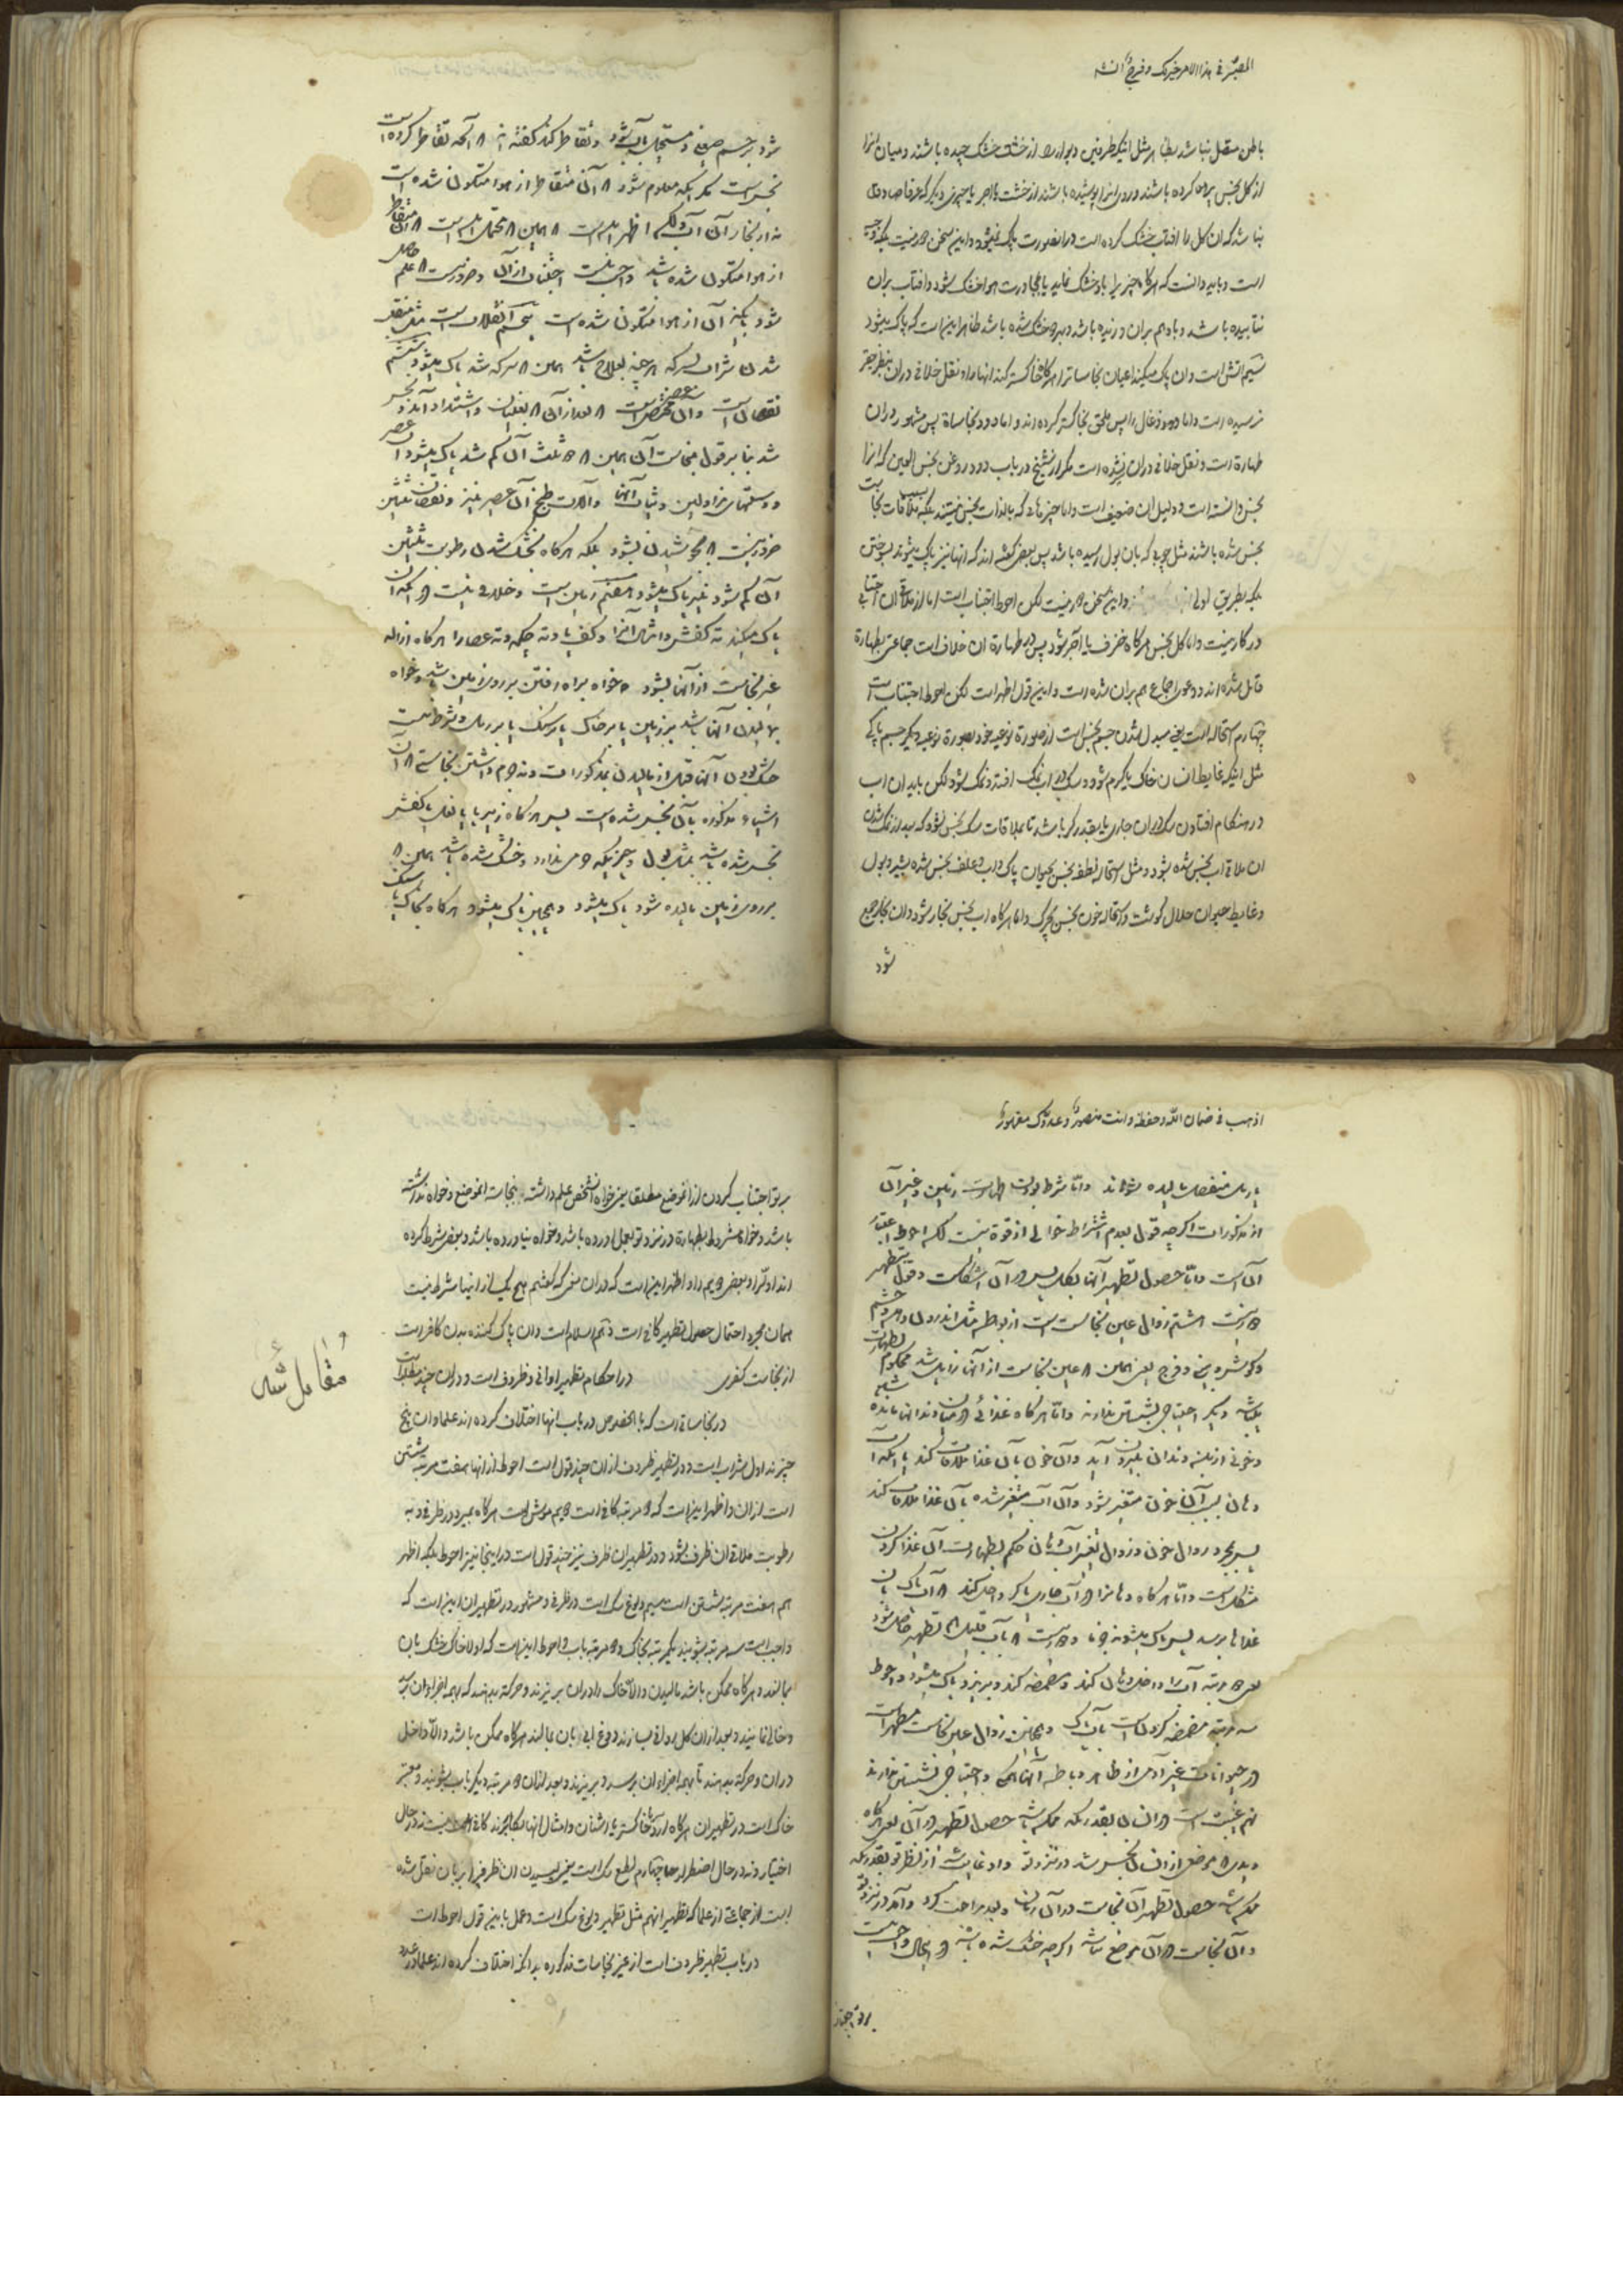 المصیر فی هذا الامر خیر لک و فرج انشه
باطن متصل نباشد بظاهر مثل اینکه طرفین دیوار را از خشت خشک چیده باشند و میان انرا
از کل نجس پر کرده باشند و روی انرا پوشیده باشند از خشت یا اجر یا چیزی دیگر که عرفا صادق
نباشد که ان کل را افتاب خشک کرده است در اینصورت پاک نمیشود و این سخن دور نیست بلکه وجیه
است و باید دانست که هرگاه چیزیرا باد خشک نماید یا بمجاورت هوا خشک شود و افتاب بران
نتابیده باشد و باد هم بران وزیده باشد و بهر دو خشک شده باشد ظاهر اینست که پاک میشود
سیم اتش است و ان پاک میکند اعیان نجاسات را هرگاه خاکستر کند انها را و نقل خلافی دران بنظر حقیر
نرسیده است و اما دود و ذغال را پس ملحق بخاکستر کرده اند و اما دود نجاساة پس مشهور دران
طهارة است و نقل خلافی دران نشده است مگر از شیخ در باب دود روغن نجس العین که انرا
نجس دانسته است و دلیل ان ضعیف است و اما چیزهائی که بالذات نجس نیستند بلکه بسبب ملاقات نجاست
نجس شده باشند مثل چوبی که بان بول رسیده باشد پس بعضی گفته اند که انها نیز پاک میشوند بسوختن
بلکه بطریق اولی و این سخن دور نیست لکن احوط اجتناب است اما از ملاقی ان اجتنابی
در کار نیست و اما کل نجس هرگاه خزف یا اجر شود پس در طهارة ان خلاف است جماعتی بطهارة
قائل شده اند و دعوی اجماع هم بران شده است و این قول اظهر است لکن احوط اجتناب است
چهارم استحاله است یعنی مبدل شدن جسم نجس است از صورة نوعیه خود بصورة نوعیه دیگر جسم پاکی
مثل اینکه غایط انسان خاک یا کرم شود و سک در اب نمک افتد و نمک شود لکن باید ان اب
در هنگام افتادن سک دران جاری یا بقدر کر باشد تا بملاقات سک نجس نشود که بعد از نمک شدن
ان ملاقی اب نجس شده بشود و مثل استحاله نطفه نجس بحیوان پاک و اب و علف نجس شده بشیر و بول
و غایط حیوان حلال گوشت و استحاله خون نجس بچرک و اما هرگاه اب نجس بخار شود و ان بخار جمع
شود
شود بر جسم صیقلی و مستحیل بآب شود و تقاطر کند گفته اند که آنچه تقاطر کرده است
نجس است مگر اینکه معلوم شود که آن متقاطر از هوا متکون شده است
نه از بخار آن آب و لکن اظهر اینست که همین که محتمل است که آن متقاطر
از هوا متکون شده باشد واجب نیست اجتناب از آن و ضرور نیست که علم حاصل
شود باینکه آن از هوا متکون شده است پنجم انقلاب است مثل منقلب
شدن شراب بسرکه هر چند بعلاج باشد همین که سرکه شد پاک میشود ششم
نقصان است و آن مختص بعصیر است که بعد از آن که بغلیان و اشتداد آمد و نجس
شد بنا بر قول بنجاست آن همین که دو ثلث آن کم شد پاک میشود آن عصیر
و دستهای مزاولین و ثیاب آنها و آلات طبخ آن عصیر نیز و نقصان ثلثین
ضرور نیست که بجوشیدن بشود بلکه هرگاه بخشک شدن رطوبت ثلثین
آن کم شود نیز پاک میشود هفتم زمین است و خلافی نیست در اینکه آن
پاک میکند ته کفش و امثال آنرا و کف پا و ته چکمه و ته عصا را هرگاه ازاله
عین نجاست از آنها بشود خواه براه رفتن بر روی زمین باشد و خواه
بمالیدن آنها باشد بر زمین یا بر خاک یا بر سنک یا بر ریک و شرط نیست
خشک بودن آنها قبل از مالیدن بمذکورات و نه جرم داشتن نجاستی که آن
اشیاء مذکوره بآن نجس شده است پس هرگاه زیر پا یا نعل یا کفش
نجس شده باشد بمثل بول و چیزیکه جرمی ندارد و خشک شده باشد همین که
بر روی زمین مالیده شود پاک میشود و همچنین پاک میشود هرگاه بخاک یا سنک
اذهب فی ضمان الله و حفظه و انت منصور و عدوک مقهور
یا ریک منفصل مالیده شوند و اما شرط بودن طهارت زمین و غیر آن
از مذکورات اگرچه قول بعدم اشتراط خالی از قوة نیست لکن احوط اعتبار
آن است و اما حصول تطهیر آنها بکل پس در آن اشکالست و قول بتطهیر
دور نیست هشتم زوال عین نجاست است از بواطن مثل اندرون دهن و چشم
و گوش و بینی و فرج یعنی همین که عین نجاست از آنها زایل شد محکوم بطهارت
میباشد و دیگر احتیاج بشستن ندارند و اما هرگاه غذائی در میان دندانها مانده باشد
و خونی از بیخ دندانی بیرون آید و آن خون بآن غذا ملاقات کند یا اینکه آب
دهان بسبب آن خون متغیر شود و آن آب متغیر شده بآن غذا ملاقات کند
پس بمجرد زوال خون و زوال تغیر آب دهان حکم بطهارت آن غذا کردن
مشکل است و اما هرگاه دهانرا در آب جاری یا کر داخل کند که آب پاک بان
غذاها برسد پس پاک میشوند جزما و دور نیست که بآب قلیل هم تطهیر حاصل شود
یعنی دو مرتبه آب را داخل دهان کند و مضمضه کند و بریزد پاک میشود و احوط
سه مرتبه مضمضه کردن است بآب پاک و همچنین زوال عین نجاست مطهر است
در حیوانات غیر آدمی از ظاهر و باطن آنها و احتیاج بشستن ندارند
نهم غیبت است در انسان بقدریکه ممکن باشد حصول تطهیر در آن یعنی هرگاه
دیدی که موضعی از انسان نجس شد در نزد تو و او غایب شد از نظر تو بقدریکه
ممکن باشد حصول تطهیر آن نجاست در آن زمان و بعد مراجعت کرد و آمد در نزد تو
و آن نجاست در آن موضع نباشد اگرچه خشک شده باشد در اینحال واجب نیست
بر تو اجتناب
بر تو اجتناب کردن از انموضع مطلقا یعنی خواه انشخص علم داشته بنجاسة انموضع و خواه نداشته
باشد و خواه مشروط بطهارة در نزد تو بعمل اورده باشد و خواه نیاورده باشد و بعضی شرط کرده
اند اول را و بعضی دویم را و اظهر اینست که دران معنی که گفتیم هیچ یک از اینها شرط نیست
همان مجرد احتمال حصول تطهیر کافی است دهم اسلام است و ان پاک کننده بدن کافر است
از نجاست کفری در احکام تطهیر اوانی و ظروف است و دران چند مطلب است
در نجاساتی است که بالخصوص در باب انها اختلاف کرده اند علما و ان پنج
چیزند اول شراب است و در تطهیر ظروف از ان چند قول است احوط از انها هفت مرتبه شستن
است از ان و اظهر اینست که سه مرتبه کافی است دویم موش است هرگاه بمیرد در ظرفی و به
رطوبت ملاقی ان ظرف شود و در تطهیر ان ظرف نیز چند قول است در اینجا نیز احوط بلکه اظهر
هم هفت مرتبه شستن است سیم ولوغ سک است در ظرفی و مشهور در تطهیر ان اینست که
واجب است سه مرتبه بشویند یکمرتبه بخاک و دو مرتبه باب و احوط اینست که اولا خاک خشک بان
بمالند هرگاه ممکن باشد مالیدن و الا خاک را دران بریزند و حرکة بدهند که بهمه اجزاء ان برسد
و خالی نمایند و بعد ازان کل روانی بسازند و بان بمالند هرگاه ممکن باشد و الا داخل
دران و حرکة بدهند تا بهمه اجزاء ان برسد و بریزند و بعد ازان دو مرتبه دیگر باب بشویند و معتبر
خاک است در تطهیر ان هرگاه ارد یا خاکستر یا اشنان و امثال انها بکار برند کافی نیست نه در حال
اختیار و نه در حال اضطرار چهارم لطع سک است یعنی لیسیدن ان ظرفیرا بزبان نقل شده
است از جماعتی از علما که تطهیر انهم مثل تطهیر ولوغ سک است و عمل باین قول احوط است
در باب تطهیر ظروف است از غیر نجاسات مذکوره بدانکه اختلاف کرده اند علما در عدد
مقابل شد